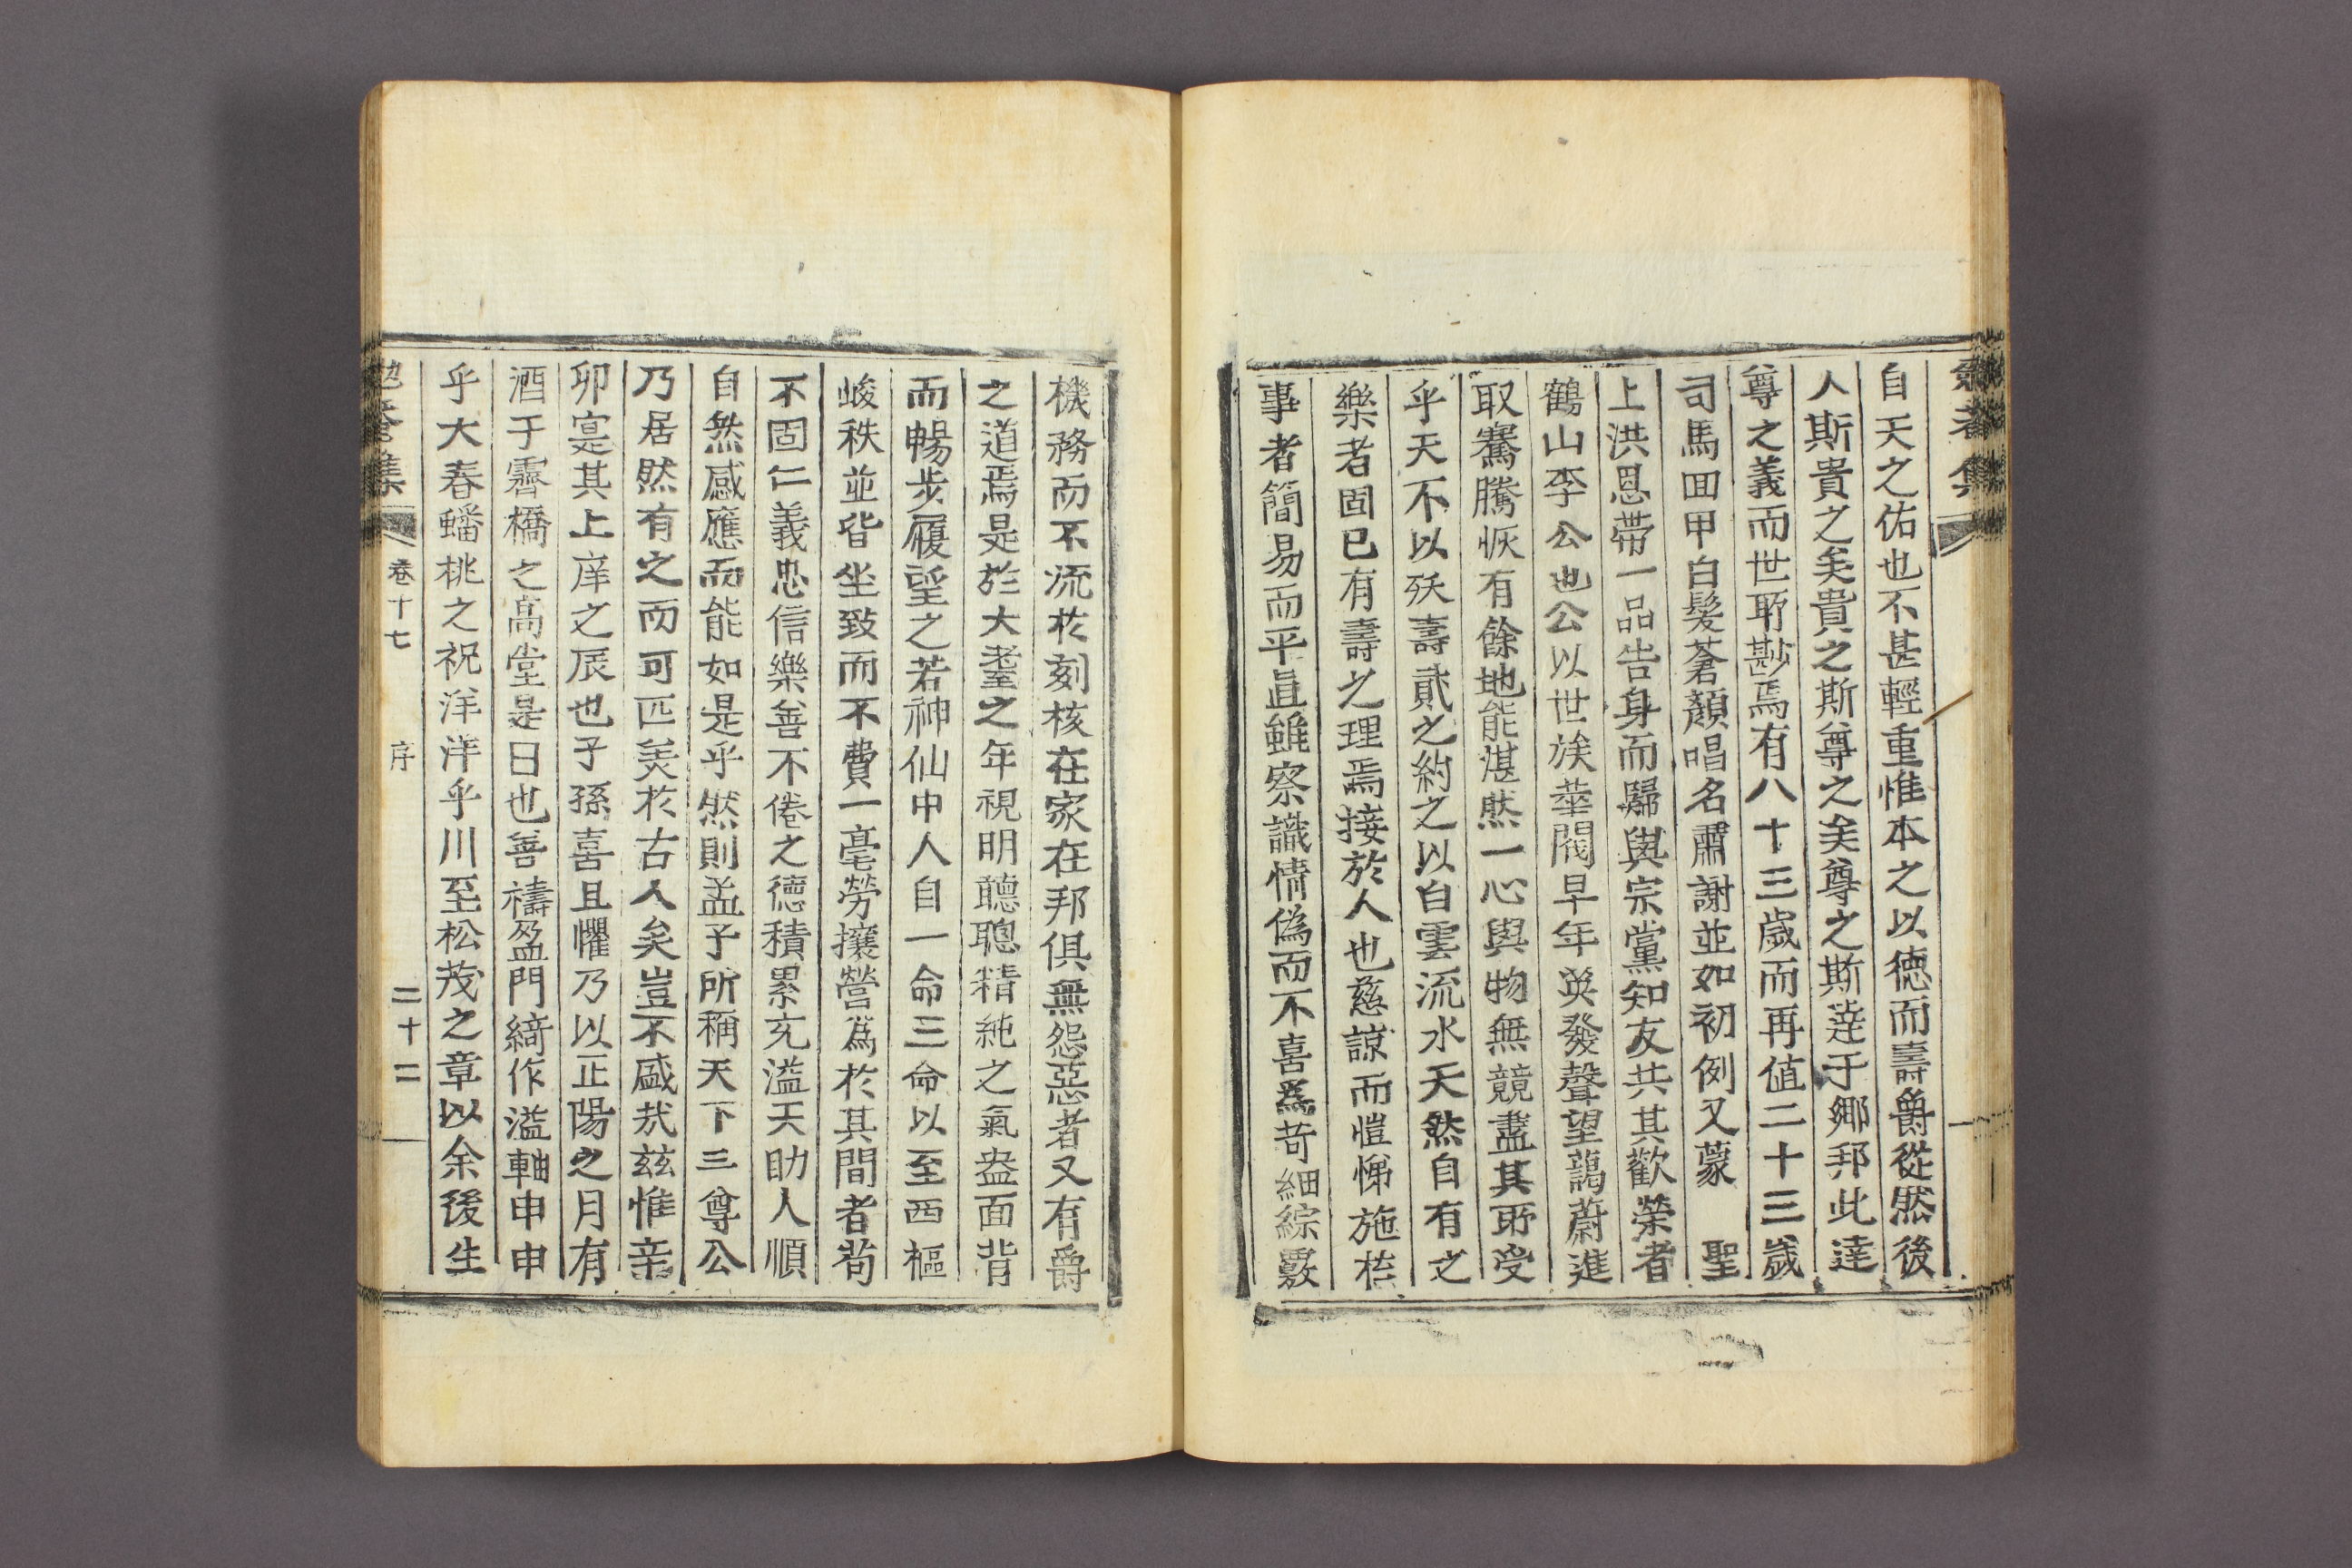 自天之佑也不甚輕重惟本之以德而壽爵從然後
人斯貴之矣貴之斯尊之矣尊之斯達于鄉邦此達
尊之義而世所尠焉有八十三歲而再値二十三歲
司馬回甲白髮蒼顏唱名肅謝並如初例又蒙 聖
上洪恩帶一品告身而歸與宗黨知友共其歡榮者
鶴山李公也公以世族華閥早年英發聲望藹蔚進
取騫騰恢有餘地能湛然一心與物無競盡其所受
乎天不以殀壽貳之約之以白雲流水天然自有之
樂者固已有壽之理焉接於人也慈諒而愷悌施於
事者簡易而平直雖察識情僞而不喜爲苛細綜覈
機務而不流於刻核在家在邦俱無怨惡者又有爵
之道焉是於大耋之年視明聽聰精純之氣盎面背
而暢步履望之若神仙中人自一命三命以至西樞
峻秩並皆坐致而不費一毫勞攘營爲於其間者苟
不固仁義忠信樂善不倦之德積累充溢天助人順
自然感應而能如是乎然則孟子所稱天下三尊公
乃居然有之而可匹美於古人矣豈不盛哉玆惟辛
卯寔其上庠之辰也子孫喜且懼乃以正陽之月有
酒于霽橋之高堂是日也善禱盈門綺作溢軸申申
乎大春蟠桃之祝洋洋乎川至松茂之章以余後生
卷十七 序 二十二